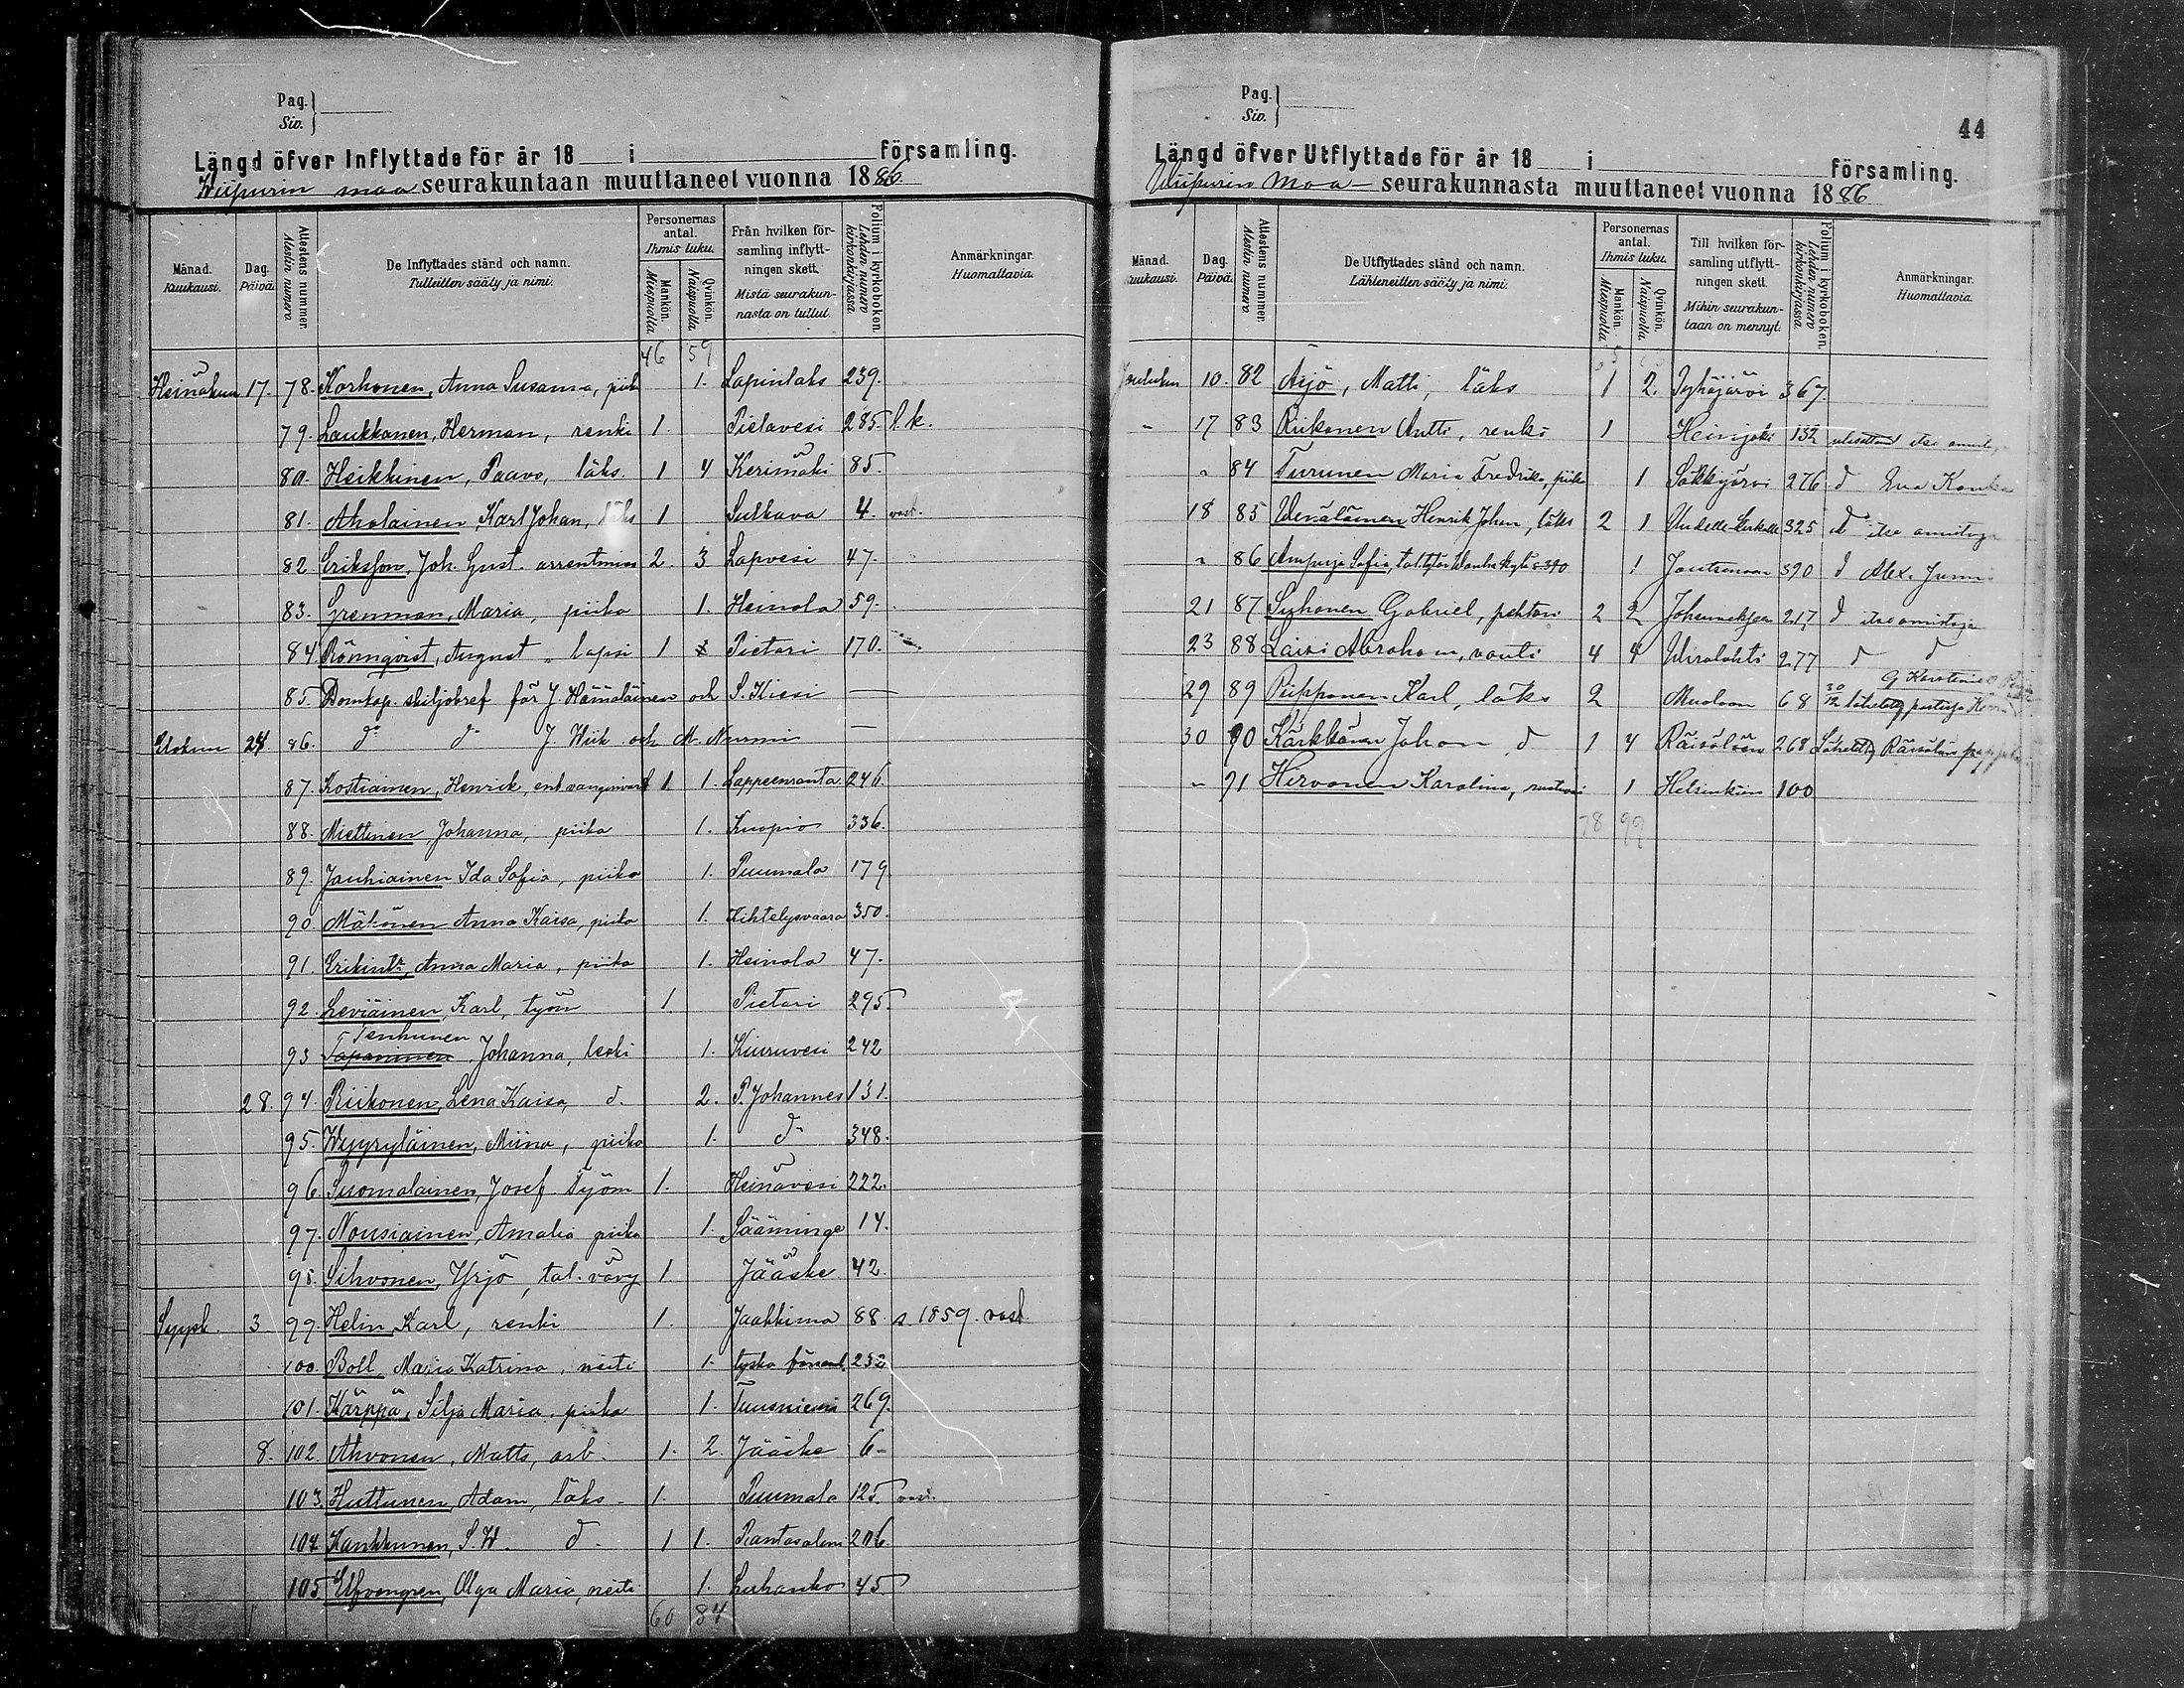 Pag.
Siv.
Längd öfver Inflyttade för år 18 i församling.
Wiipurin maa seurakuntaan muuttaneet vuonna 1886.
Månad. Kuukausi.
Dag. Päivä.
Attestens nummer. Alestin numero
De Inflyttades stånd och namn.
Tulleitten sääty ja nimi.
Personernas antal.
Ihmis luku.
Mankön. Miespuolta
Qvinkön. Naispuolta
Från hvilken församling inflyttningen skett.
Mistä seurakunnasta on tullut.
Folium i kyrkoboken. Lehden numero kirkonkirjassa.
Anmärkningar.
Huomattavia.
46 59
Heinäkuu 17. 78. Korhonen, Anna Susanna, piika 1. Lapinlaks 239.
79. Laukkanen, Herman, renki 1. Pielavesi 285. l.k.
80. Heikkinen, Paavo, läks. 1 4 Kerimäki 85.
81. Aholainen, Karl Johan, läks 1 Sulkava 4. vast.
82. Eriksson, Joh. Gust. arrentmies 2. 3 Lapvesi 47.
83. Grenman, Maria, piika 1. Heinola 59.
84 Rönnqvist, August lapsi 1 Pietari 170.
85. Domkap. skiljobref för J. Hämäläinen och S. Kiesi —
Elokuu 24. 86. do do J. Wiik och M. Nurmi —
87. Kostiainen, Henrik, ent. vanginvart 1 1. Lappeenranta 246.
88. Miettinen, Johanna, piika 1. Kuopio 336.
89. Jauhiainen Ida Sofia, piika 1. Puumala 179
90. Mätönen Anna Kaisa, piika 1. Kihtelysvaara 350.
91. Erikintr, Anna Maria, piika 1. Heinola 47.
92. Leviäinen, Karl, työm 1. Pietari 295
Tenhunen
93 Taponinen, Johanna, leski 1. Kiuruvesi 242
28. 94. Riikonen, Lena Kaisa, d. 2. P. Johannes 131.
95. Wyyryläinen, Miina, piika 1. do 348.
96. Suomalainen, Josef. työm 1. Heinävesi 222.
97. Nousiainen, Amalia piika 1. Sääminge 14.
98. Sihvonen, Yrjö, tal. vävy 1. Jääske. 42.
Syysk. 3 99. Helin, Karl, renki 1. Jaakkima 88. s. 1859. vast.
100. Boll, Maria Katrina, neiti 1. tyska församl. 232
101. Kärppä, Silja Maria, piika 1. Tuusniemi 269.
8. 102. Ahvonen, Matts, arb. 1. 2. Jääske 6.
103. Huttunen, Adam, läks. 1. Puumala 125. vast.
104 Kankkunen, S. W. d. 1 1. Rantasalmi 206.
105 Elfvengren, Olga Maria, neiti 1. Luhanko 45.
60 84
Pag.
Siv.
44
Längd öfver Utflyttade för år 18 i församling.
Wiipurin Maa seurakunnasta muuttaneet vuonna 1886
Månad. Kuukausi.
Dag. Päivä.
Attestens nummer. Alestin numero
De Utflyttades stånd och namn.
Lähteneitten sääty ja nimi.
Personernas antal.
Ihmis luku.
Mankön. Miespuolta
Qvinkön. Naispuolta
Till hvilken församling utflyttningen skett.
Mihin seurakuntaan on mennyt.
Folium i kyrkoboken. Lehden numero kirkonkirjassa.
Anmärkningar.
Huomattavia.
Joulukuu 10. 82 Äijö, Matti, läks 1 2. Pyhäjärvi 367.
" 17 83 Riikonen Antti, renki 1 Heinjoki 132 itse
" 84 Turunen Maria Fredrika, piika 1 Säkkijärvi 276 d Eva
18 85 Wenäläinen Henrik Johan, läks 2 1 Uudelle Kirkolle 325 d itse omistaja
" 86 Ampuja Sofia, tal. tytär Wanhakylä s. 390 1 Jantsenaan 390 d Alex.
21 87 Syhonen Gabriel, pehtori 2 2 Johanneksen 217 d itse omistaja
23 88 Laisi Abraham, vouti 4 4 Wirolahti 277 d d
29 89 Piipponen Karl, läks 2 Muolaan 68 30/12
30 90 Kärkkäinen Johan, d 1 4 Räisälään 268 Lähetetty Räisälän
" 91 Hirvonen Karolina, 1 Helsinkiin 100
78 99